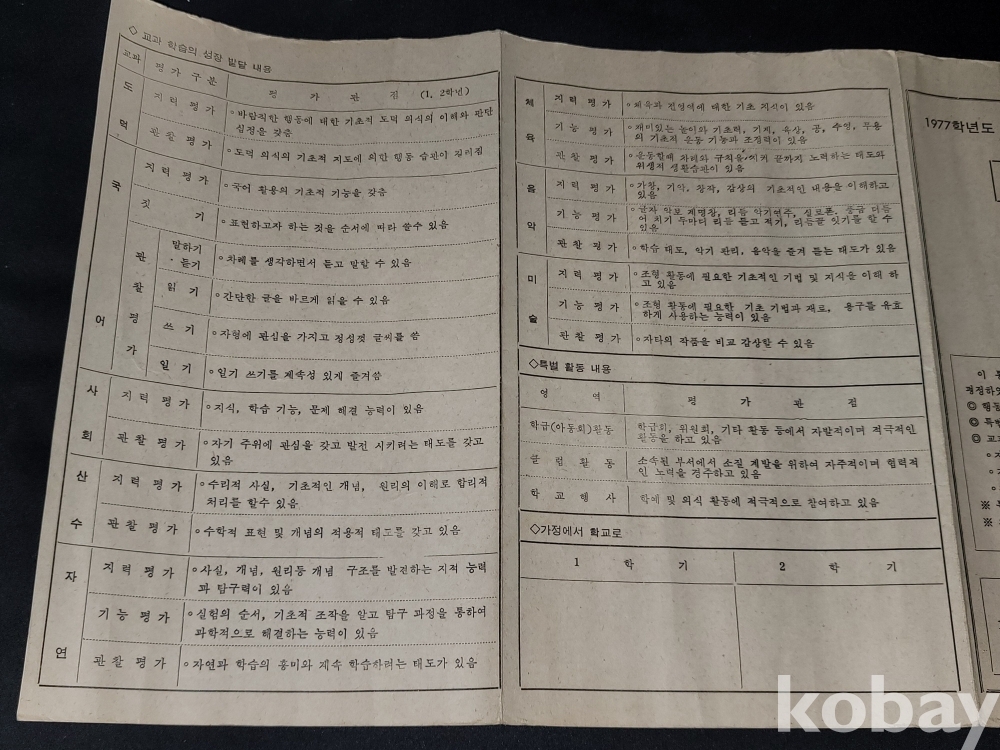 ◇ 교과 학습의 성장 발달 내용
교과 평가구분 평 가 관 점 (1, 2학년)
도덕
지력평가 ◦바람직한 행동에 대한 기초적 도덕 의식의 이해와 판단
심정을 갖춤
관찰평가 ◦도덕 의식의 기초적 지도에 의한 행동 습관이 길러짐
국어
지력평가 ◦국어 활용의 기초적 기능을 갖춤
짓 기 ◦표현하고자 하는 것을 순서에 따라 쓸수 있음
관찰평가
말하기
·듣기 ◦차례를 생각하면서 듣고 말할 수 있음
읽 기 ◦간단한 글을 바르게 읽을 수 있음
쓰 기 ◦자형에 관심을 가지고 정성껏 글씨를 씀
일 기 ◦일기 쓰기를 계속성 있게 즐겨씀
사회
지력평가 ◦지식, 학습 기능, 문제 해결 능력이 있음
관찰평가 ◦자기 주위에 관심을 갖고 발전 시키려는 태도를 갖고
있음
산수
지력평가 ◦수리적 사실, 기초적인 개념, 원리의 이해로 합리적
처리를 할수 있음
관찰평가 ◦수학적 표현 및 개념의 적용적 태도를 갖고 있음
자연
지력평가 ◦사실, 개념, 원리등 개념 구조를 발전하는 지적 능력
과 탐구력이 있음
기능평가 ◦실험의 순서, 기초적 조작을 알고 탐구 과정을 통하여
과학적으로 해결하는 능력이 있음
관찰평가 ◦자연과 학습의 흥미와 계속 학습하려는 태도가 있음
체육
지력평가 ◦체육과 전영역에 대한 기초 지식이 있음
기능평가 ◦재미있는 놀이와 기초력, 기계, 육상, 공, 수영, 무용
의 기초적 운동 기능과 조정력이 있음
관찰평가 ◦운동할때 차례와 규칙을 지켜 끝까지 노력하는 태도와
위생적 생활습관이 있음
음악
지력평가 ◦가창, 기악, 창작, 감상의 기초적인 내용을 이해하고
있음
기능평가 ◦글자 악보 계명창, 리듬 악기연주, 실로폰, 풍금 더듬
어 치기 두마디 리듬 듣고 적기, 리듬꼴 잇기를 할 수
있음
관찰평가 ◦학습 태도, 악기 관리, 음악을 즐겨 듣는 태도가 있음
미술
지력평가 ◦조형 활동에 필요한 기초적인 기법 및 지식을 이해 하
고 있음
기능평가 ◦조형 활동에 필요한 기초 기법과 재료, 용구를 유효
하게 사용하는 능력이 있음
관찰평가 ◦자타의 작품을 비교 감상할 수 있음
◇특별 활동 내용
영 역 평 가 관 점
학급(아동회)활동 학급회, 위원회, 기타 활동 등에서 자발적이며 적극적인
활동을 하고 있음
클럽활동 소속된 부서에서 소질 계발을 위하여 자주적이며 협력적
인 노력을 경주하고 있음
학교행사 학예 및 의식 활동에 적극적으로 참여하고 있음
◇가정에서 학교로
1 학 기 2 학 기
1977학년도
이
평정하
◎ 행동
◎ 특
◎ 교
※
※
kobay